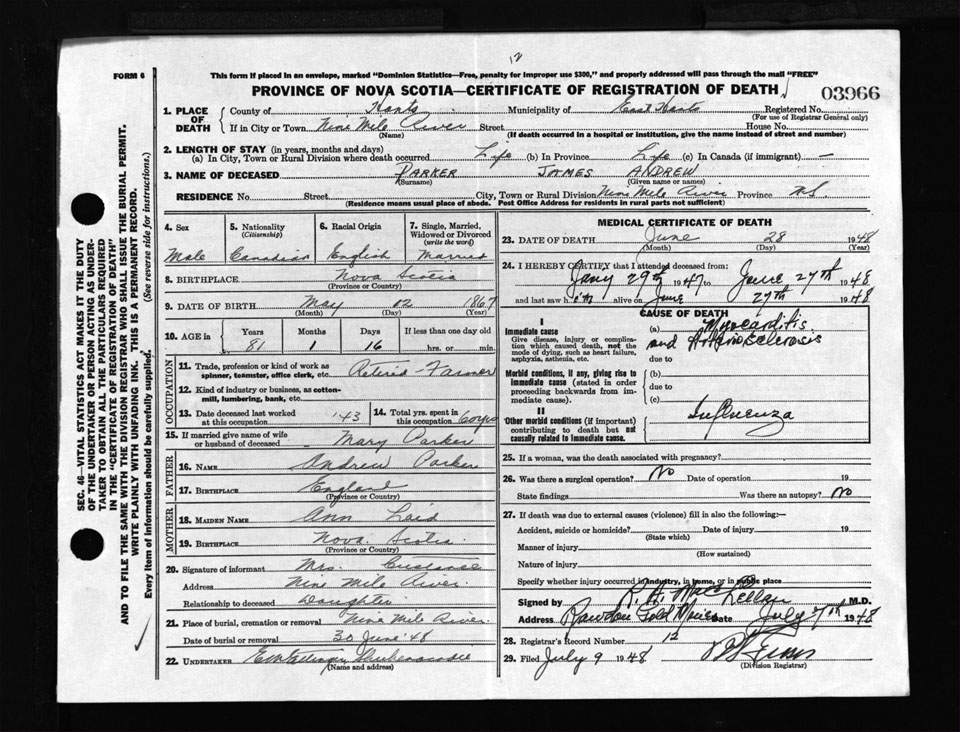 12
FORM 6
This form if placed in an envelope, marked "Dominion Statistics—Free, penalty for improper use $300," and properly addressed will pass through the mail "FREE"
PROVINCE OF NOVA SCOTIA—CERTIFICATE OF REGISTRATION OF DEATH
03966
1. PLACE OF DEATH
County of Hants Municipality of East Hants Registered No.
(For use of Registrar General only)
If in City or Town Nine Mile River Street House No.
(Name) (If death occurred in a hospital or institution, give the name instead of street and number)
2. LENGTH OF STAY (in years, months and days)
(a) In City, Town or Rural Division where death occurred Life (b) In Province Life (c) In Canada (if immigrant) —
3. NAME OF DECEASED PARKER JAMES ANDREW
(Surname) (Given name or names)
RESIDENCE No. Street City, Town or Rural Division Nine Mile River Province N.S.
(Residence means usual place of abode. Post Office Address for residents in rural parts not sufficient)
4. Sex
5. Nationality (Citizenship)
6. Racial Origin
7. Single, Married, Widowed or Divorced (write the word)
Male Canadian English Married
8. BIRTHPLACE Nova Scotia
(Province or Country)
9. DATE OF BIRTH May 12 1867
(Month) (Day) (Year)
10. AGE in
Years Months Days If less than one day old
81 1 16 hrs. or min.
OCCUPATION
11. Trade, profession or kind of work as spinner, teamster, office clerk, etc. Retired Farmer
12. Kind of industry or business, as cotton-mill, lumbering, bank, etc.
13. Date deceased last worked at this occupation '43
14. Total yrs. spent in this occupation 60 yrs
15. If married give name of wife or husband of deceased Mary Parker
FATHER
16. NAME Andrew Parker
17. BIRTHPLACE England
(Province or Country)
MOTHER
18. MAIDEN NAME Ann
19. BIRTHPLACE Nova Scotia
(Province or Country)
20. Signature of informant Mrs.
Address Nine Mile River
Relationship to deceased Daughter
21. Place of burial, cremation or removal Nine Mile River
Date of burial or removal 30 June '48
22. UNDERTAKER
(Name and address)
MEDICAL CERTIFICATE OF DEATH
23. DATE OF DEATH June 28 1948
(Month) (Day) (Year)
24. I HEREBY CERTIFY that I attended deceased from:
Jany 29th 1947 to June 27th 1948
and last saw him alive on June 27th 1948
CAUSE OF DEATH
I
Immediate cause
Give disease, injury or complication which caused death, not the mode of dying, such as heart failure, asphyxia, asthenia, etc.
(a) Myocarditis
and Arteriosclerosis
due to
Morbid conditions, if any, giving rise to immediate cause (stated in order proceeding backwards from immediate cause).
(b)
due to
(c)
II
Other morbid conditions (if important) contributing to death but not causally related to immediate cause.
Influenza
25. If a woman, was the death associated with pregnancy?
26. Was there a surgical operation? No Date of operation 19
State findings Was there an autopsy? No
27. If death was due to external causes (violence) fill in also the following:—
Accident, suicide or homicide? Date of injury 19
(State which)
Manner of injury
(How sustained)
Nature of injury
Specify whether injury occurred in industry, in home, or in public place
Signed by R. A. MacLellan M.D.
Address Rawdon Gold Mines Date July 7th 1948
28. Registrar's Record Number 12
29. Filed July 9 1948
(Division Registrar)
SEC. 46—VITAL STATISTICS ACT MAKES IT THE DUTY
OF THE UNDERTAKER OR PERSON ACTING AS UNDER-
TAKER TO OBTAIN ALL THE PARTICULARS REQUIRED
IN THE "CERTIFICATE OF REGISTRATION OF DEATH"
AND TO FILE THE SAME WITH THE DIVISION REGISTRAR WHO SHALL ISSUE THE BURIAL PERMIT.
WRITE PLAINLY WITH UNFADING INK. THIS IS A PERMANENT RECORD.
Every item of information should be carefully supplied. (See reverse side for instructions.)